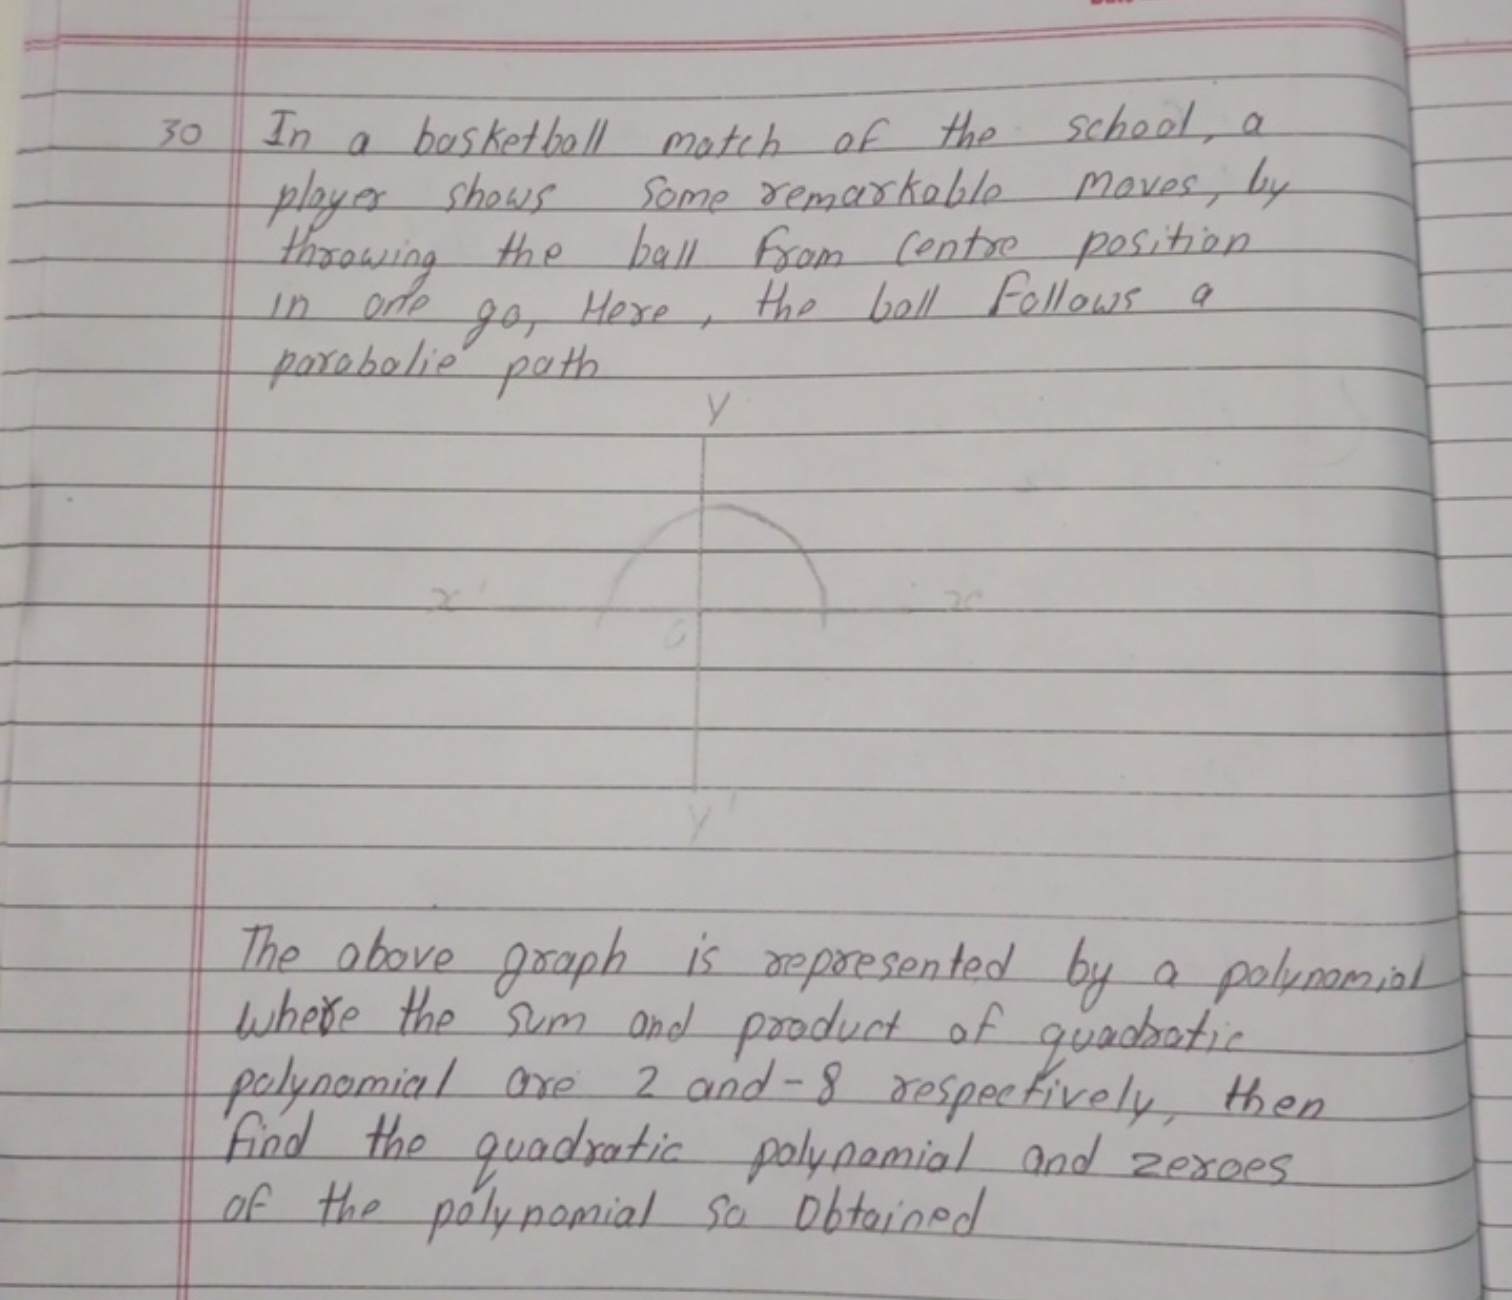 30 In a basketball match of the school, a
player shows some remarkable moves, by
throwing the ball from centre position
in one go, Here, the ball follows a
parabolic path
y
x' x
O
y'
The above graph is represented by a polynomial
where the sum and product of quadratic
polynomial are 2 and -8 respectively, then
find the quadratic polynomial and zeroes
of the polynomial so obtained